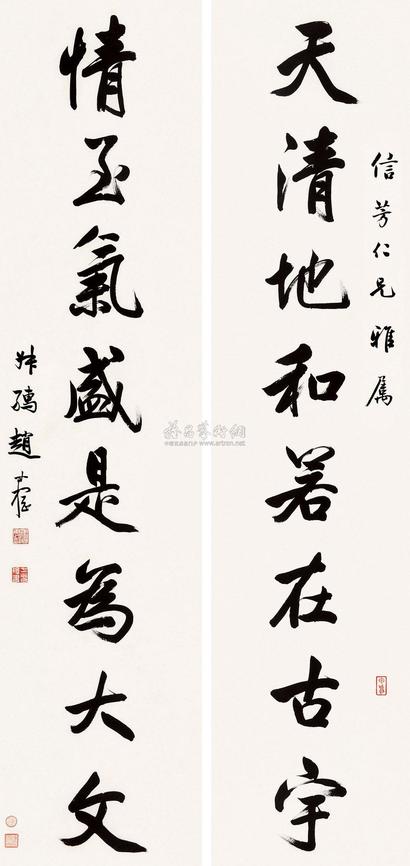 信芳仁兄雅属
天清地和若在古宇
情至气盛是為大文
叔孺趙